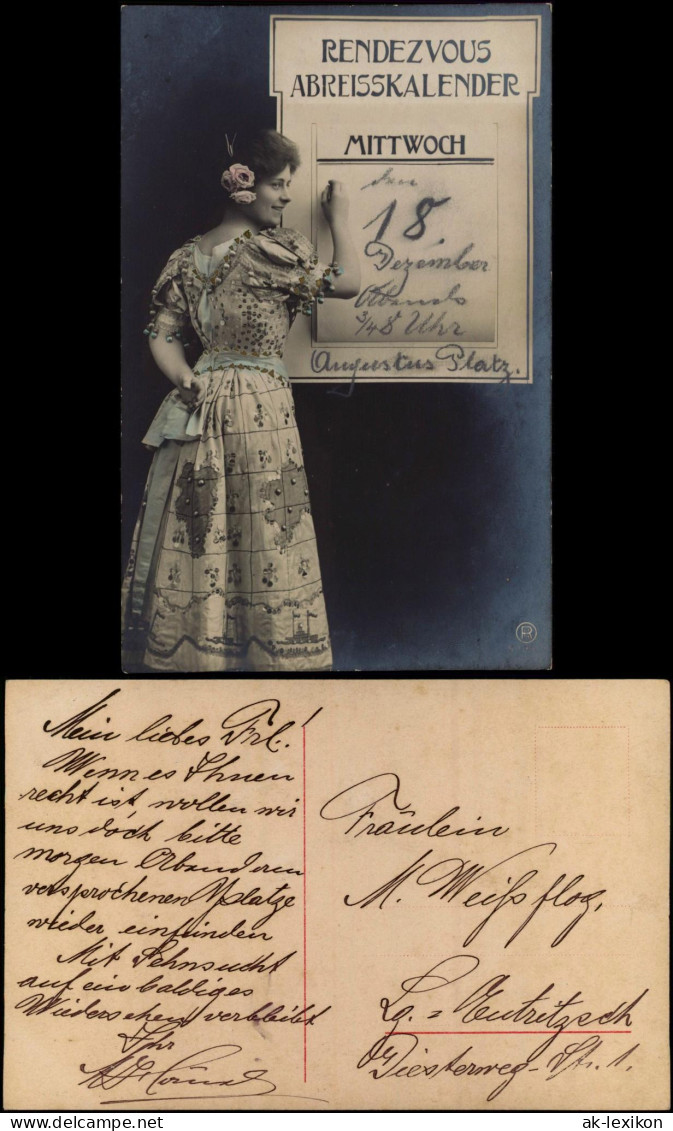 RENDEZVOUS
ABREISSKALENDER
MITTWOCH
den
18.
Dezember
Abends
3/4 8 Uhr
Augustus Platz.
Mein liebes Frl.!
Wenn es Ihnen
recht ist, wollen wir
uns doch bitte
morgen Abend am
versprochenen Platze
wieder einfinden
Mit Sehnsucht
auf ein baldiges
Wiedersehen verbleibt
Ihr
Fräulein
M. Weißflog,
Lg.=Eutritzsch
Diesterweg-Str. 1.
ak-lexikon